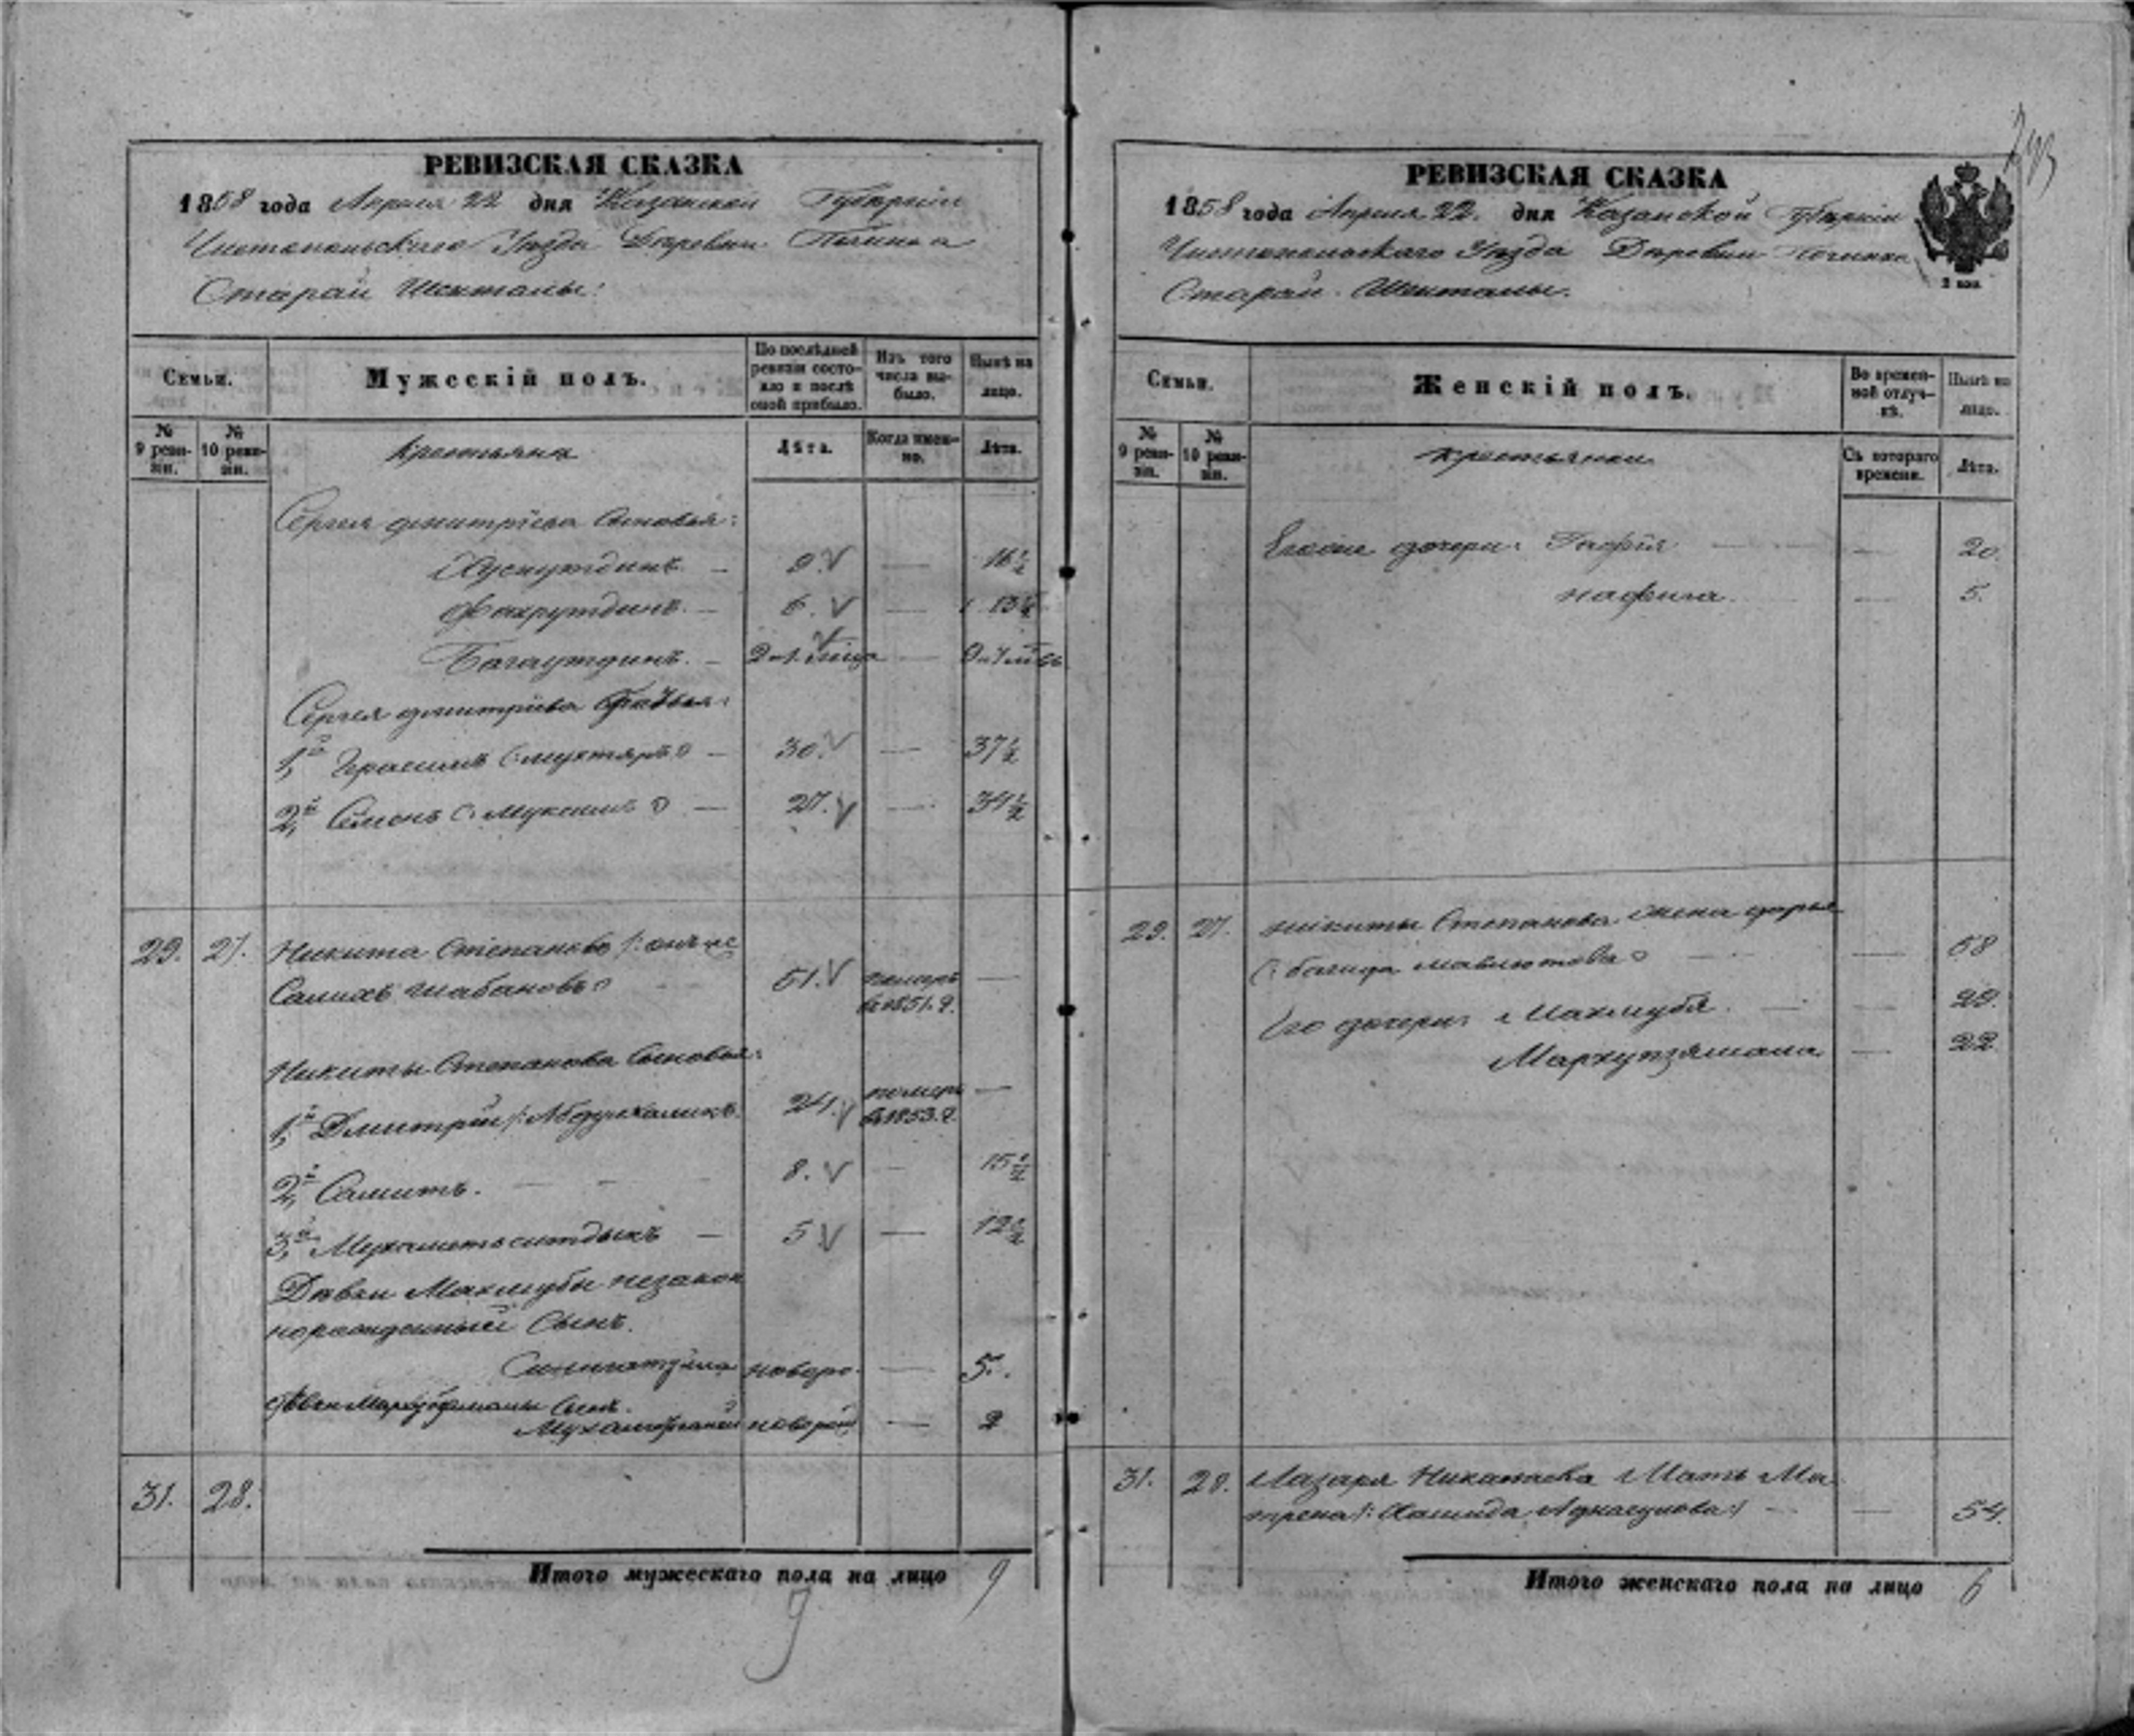 РЕВИЗСКАЯ СКАЗКА
1858 года Апреля 22 дня Казанской Губернiи
Чистопольскаго Уѣзда Деревни Починка
Старай Шенталы:
Семьи.
Мужескiй полъ.
По послѣдней ревизiи состояло и послѣ оной прибыло.
Изъ того числа выбыло.
Нынѣ на лицо.
№ 9 ревизiи.
№ 10 ревизiи.
Крестьяна
Лѣта.
Когда именно.
Лѣта.
Сергея Дмитрiева Сыновья:
Хуснутдинъ. — 9. — 16½
Фахрутдинъ. — 6. — 13½
Багаутдинъ. —
Сергея Дмитрiева братья:
1й Герасимъ (:мухтяръ:) — 30. — 37½
2й Семенъ (:Муксинъ:) — 27. — 34½
29. 27. Никита Степановъ (: онъ же
Салихъ Шабановъ:) 51. померъ —
в 1851. г.
Никиты Степанова Сыновья:
1й Дмитрiй (: Абдулхаликъ. 24. померъ —
в 1853. г.
2й Самитъ. — 8. — 15½
3й Мухаметьситдыкъ — 5 — 12½
Дѣвки Махмубы незакон
норожденный Сынъ.
новоро. — 5.
дѣвки Сынъ.
новорож — 2
31. 28.
Итого мужескаго пола на лицо 9
9
РЕВИЗСКАЯ СКАЗКА
1858 года Апреля 22. дня Казанской Губернiи
Чистопольскаго Уѣзда Деревни Починка
Старай Шенталы.
Семьи.
Женскiй полъ.
Во временной отлучкѣ.
Нынѣ на лицо.
№ 9 ревизiи.
№ 10 ревизiи.
Крестьянки
Съ котораго времени.
Лѣта.
Егоже дочери: — 20.
нафиса. — 5.
29. 27. Никиты Степанова жена дарья
мавлютова:) — 58
Его дочери: Махмуба. — 29.
— 22.
31. 28. Лазаря мать Ма
трена (: Хамида :) — 54.
Итого женскаго пола на лицо 6